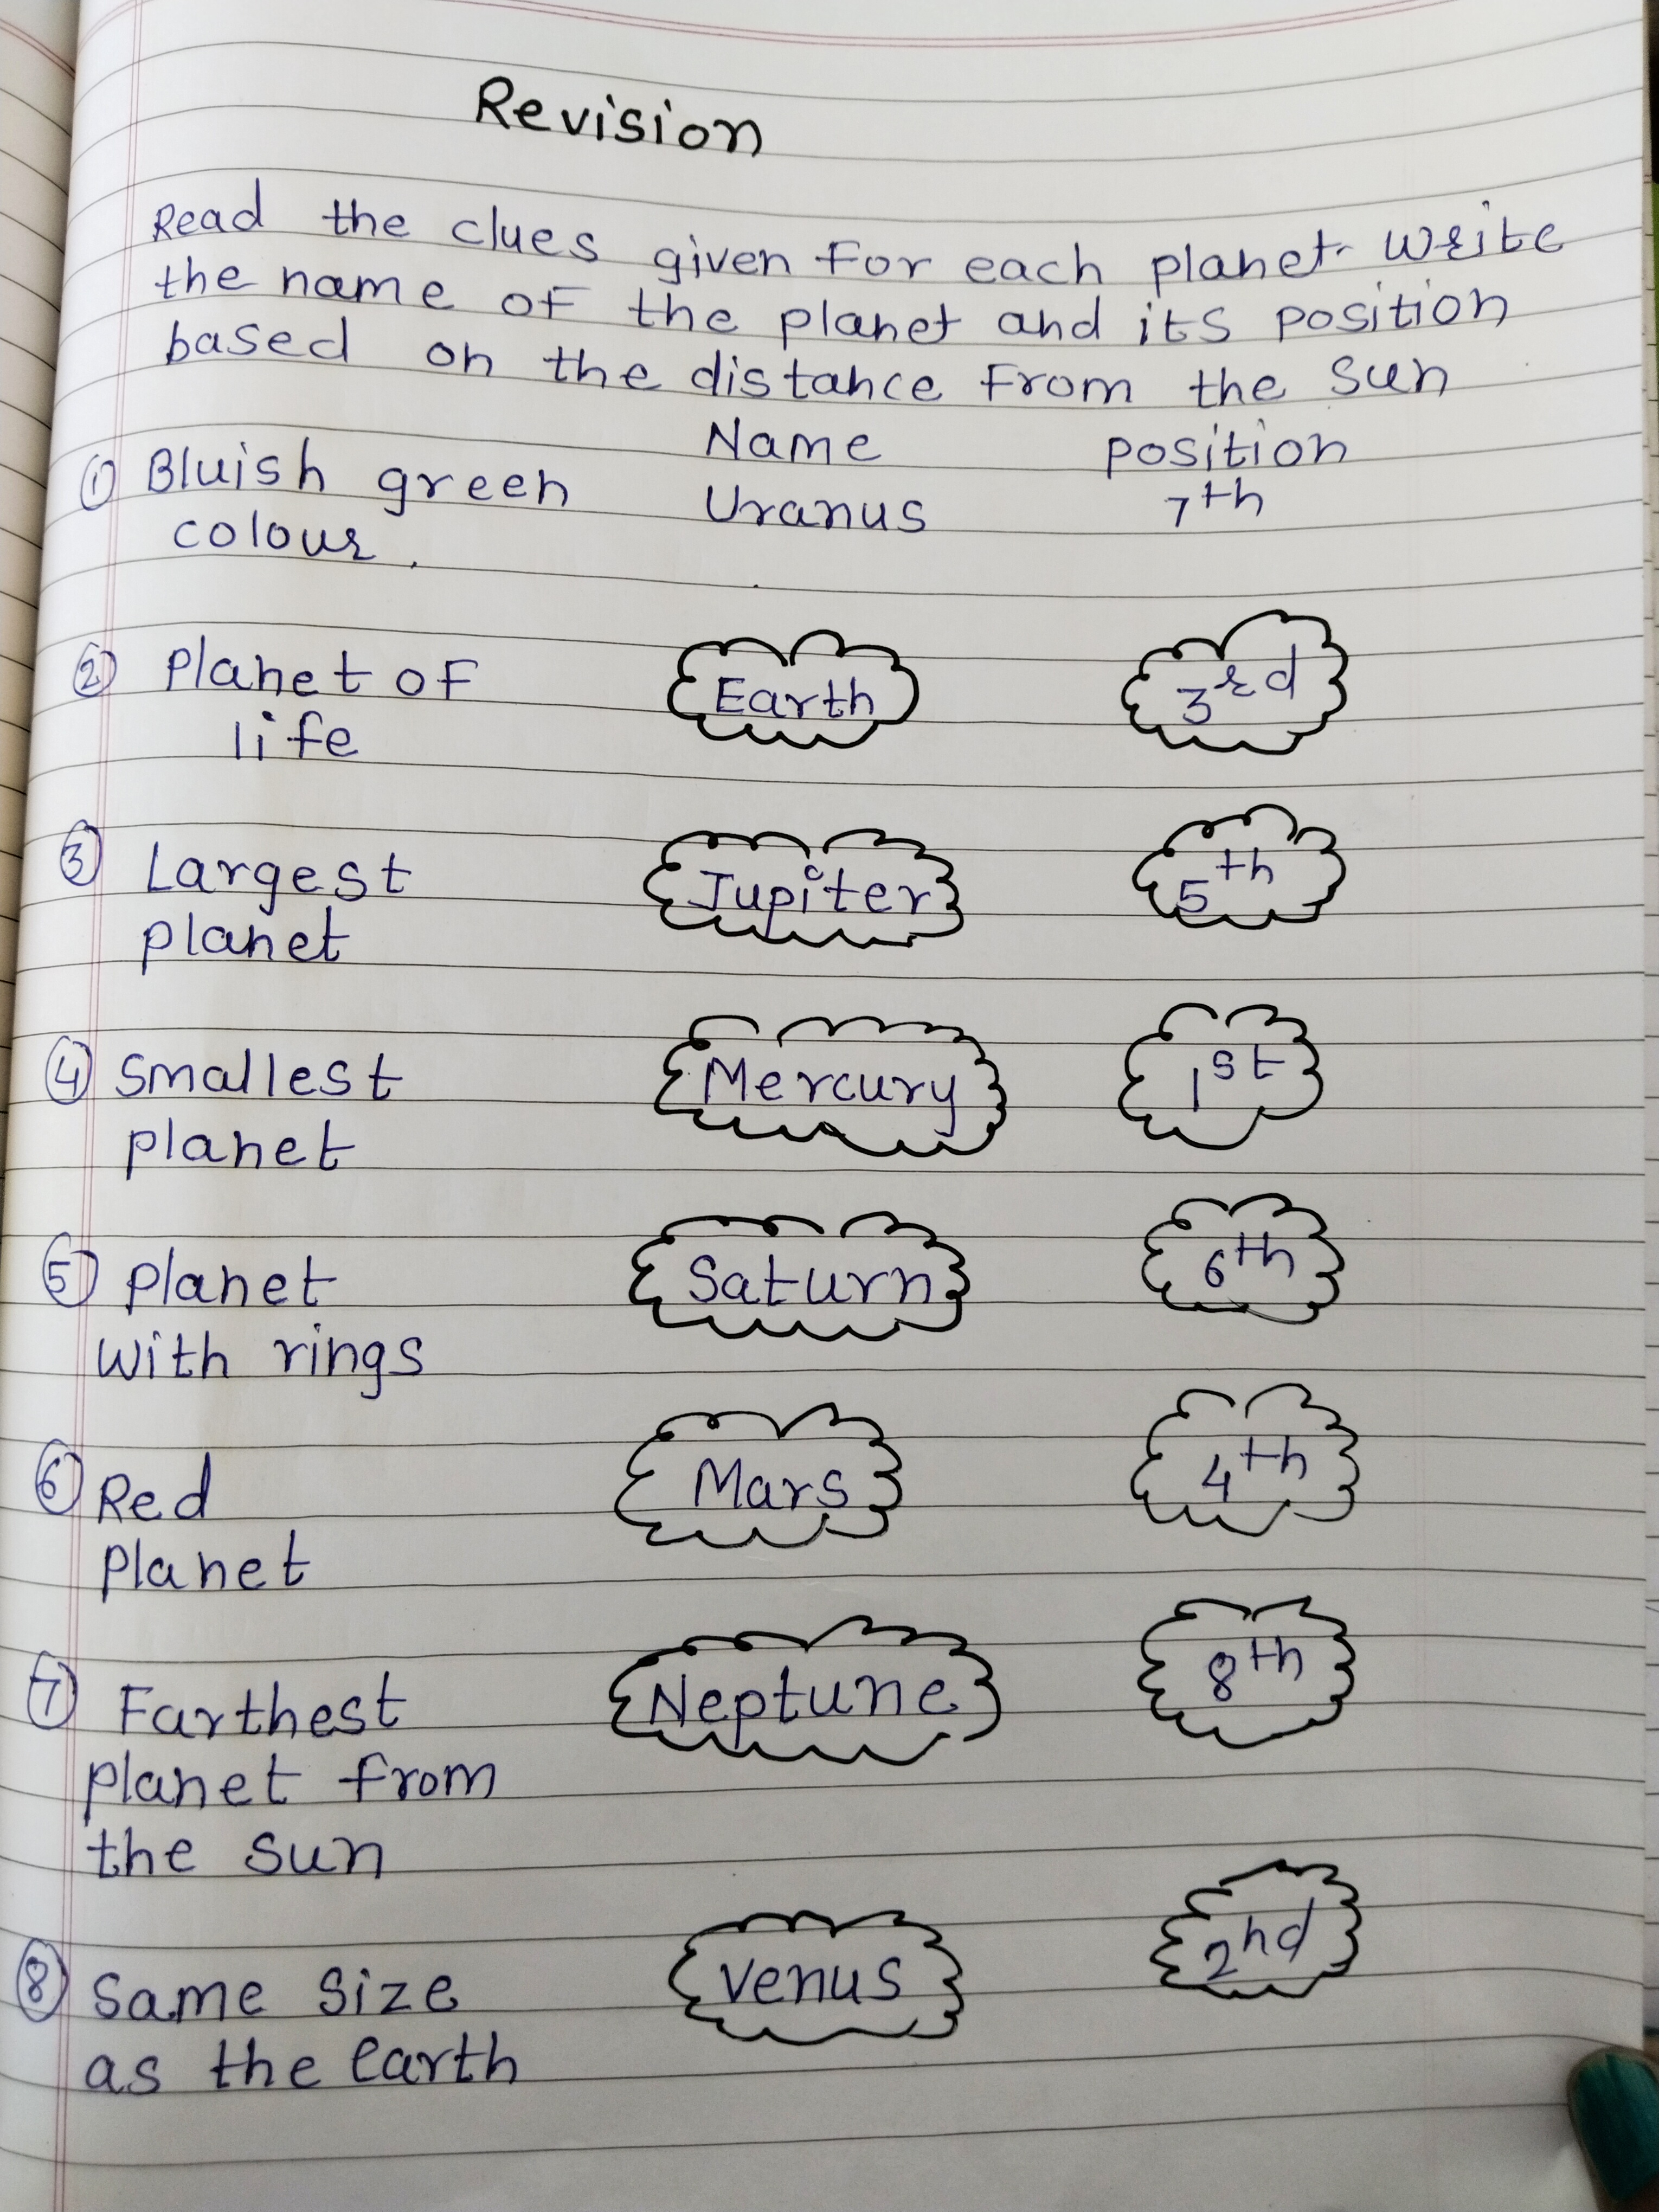 Revision
Read the clues given for each planet. Write
the name of the planet and its position
based on the distance from the sun
Name position
① Bluish green Uranus 7th
colour.
② Planet of Earth 3rd
life
③ Largest Jupiter 5th
planet
④ Smallest Mercury 1st
planet
⑤ Planet Saturn 6th
with rings
⑥ Red Mars 4th
Planet
⑦ Farthest Neptune 8th
planet from
the sun
⑧ Same size Venus 2nd
as the earth